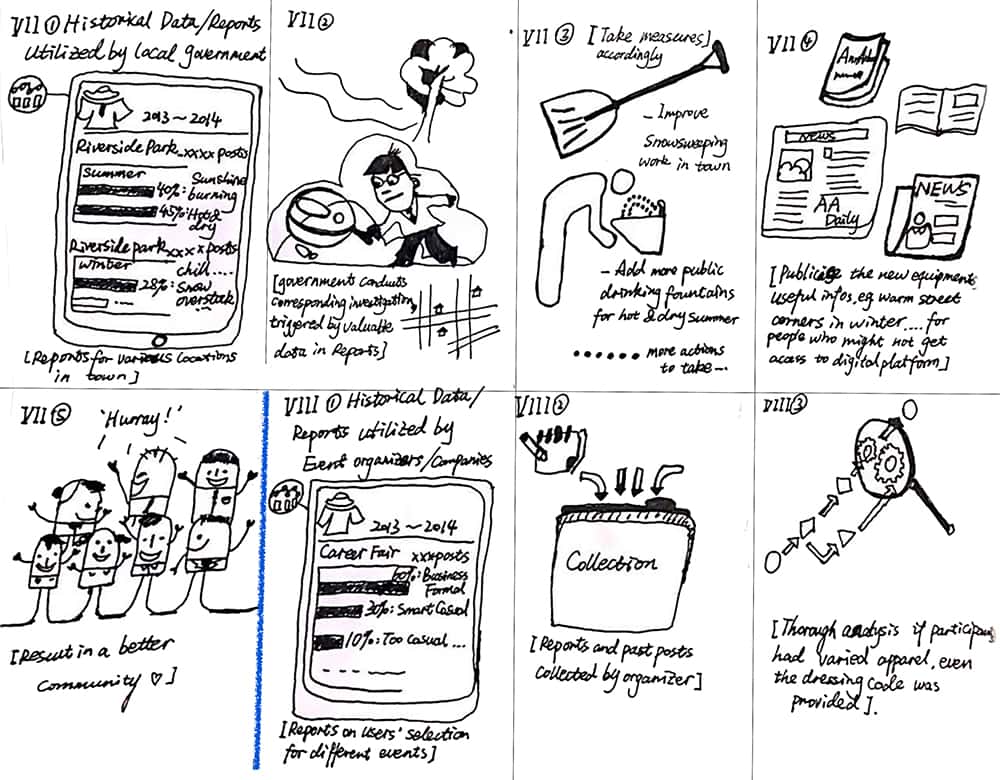 VII ① Historical Data/Reports
utilized by local government
2013~2014
Riverside Park_xxxx posts
Summer
40%: Sunshine burning
45%: Hot & dry
Riverside park_xxxx posts
winter
chill....
28%: Snow overstock
....
[Reports for various locations
in town]
VII ②
[government conducts
corresponding investigation,
triggered by valuable
data in Reports]
VII ③ [Take measures]
accordingly
- Improve
Snowsweeping
work in town
- Add more public
drinking fountains
for hot & dry summer
...... more actions
to take--
VII ④
NEWS
AA
Daily
NEWS
[Publicise the new equipments,
useful infos, eg warm street
corners in winter.... for
people who might not get
access to digital platform]
VII ⑤
'Hurray!'
[Result in a better
Community ♡]
VIII ① Historical Data/
Reports utilized by
Event organizers/Companies
2013~2014
Career Fair xxxposts
60%: Business
Formal
30%: Smart Casual
10%: Too Casual ...
[Reports on users' selection
for different events]
VIII ②
Collection
[Reports and past posts
collected by organizer]
VIII ③
[Thorough analysis if participants
had varied apparel, even
the dressing code was
provided].